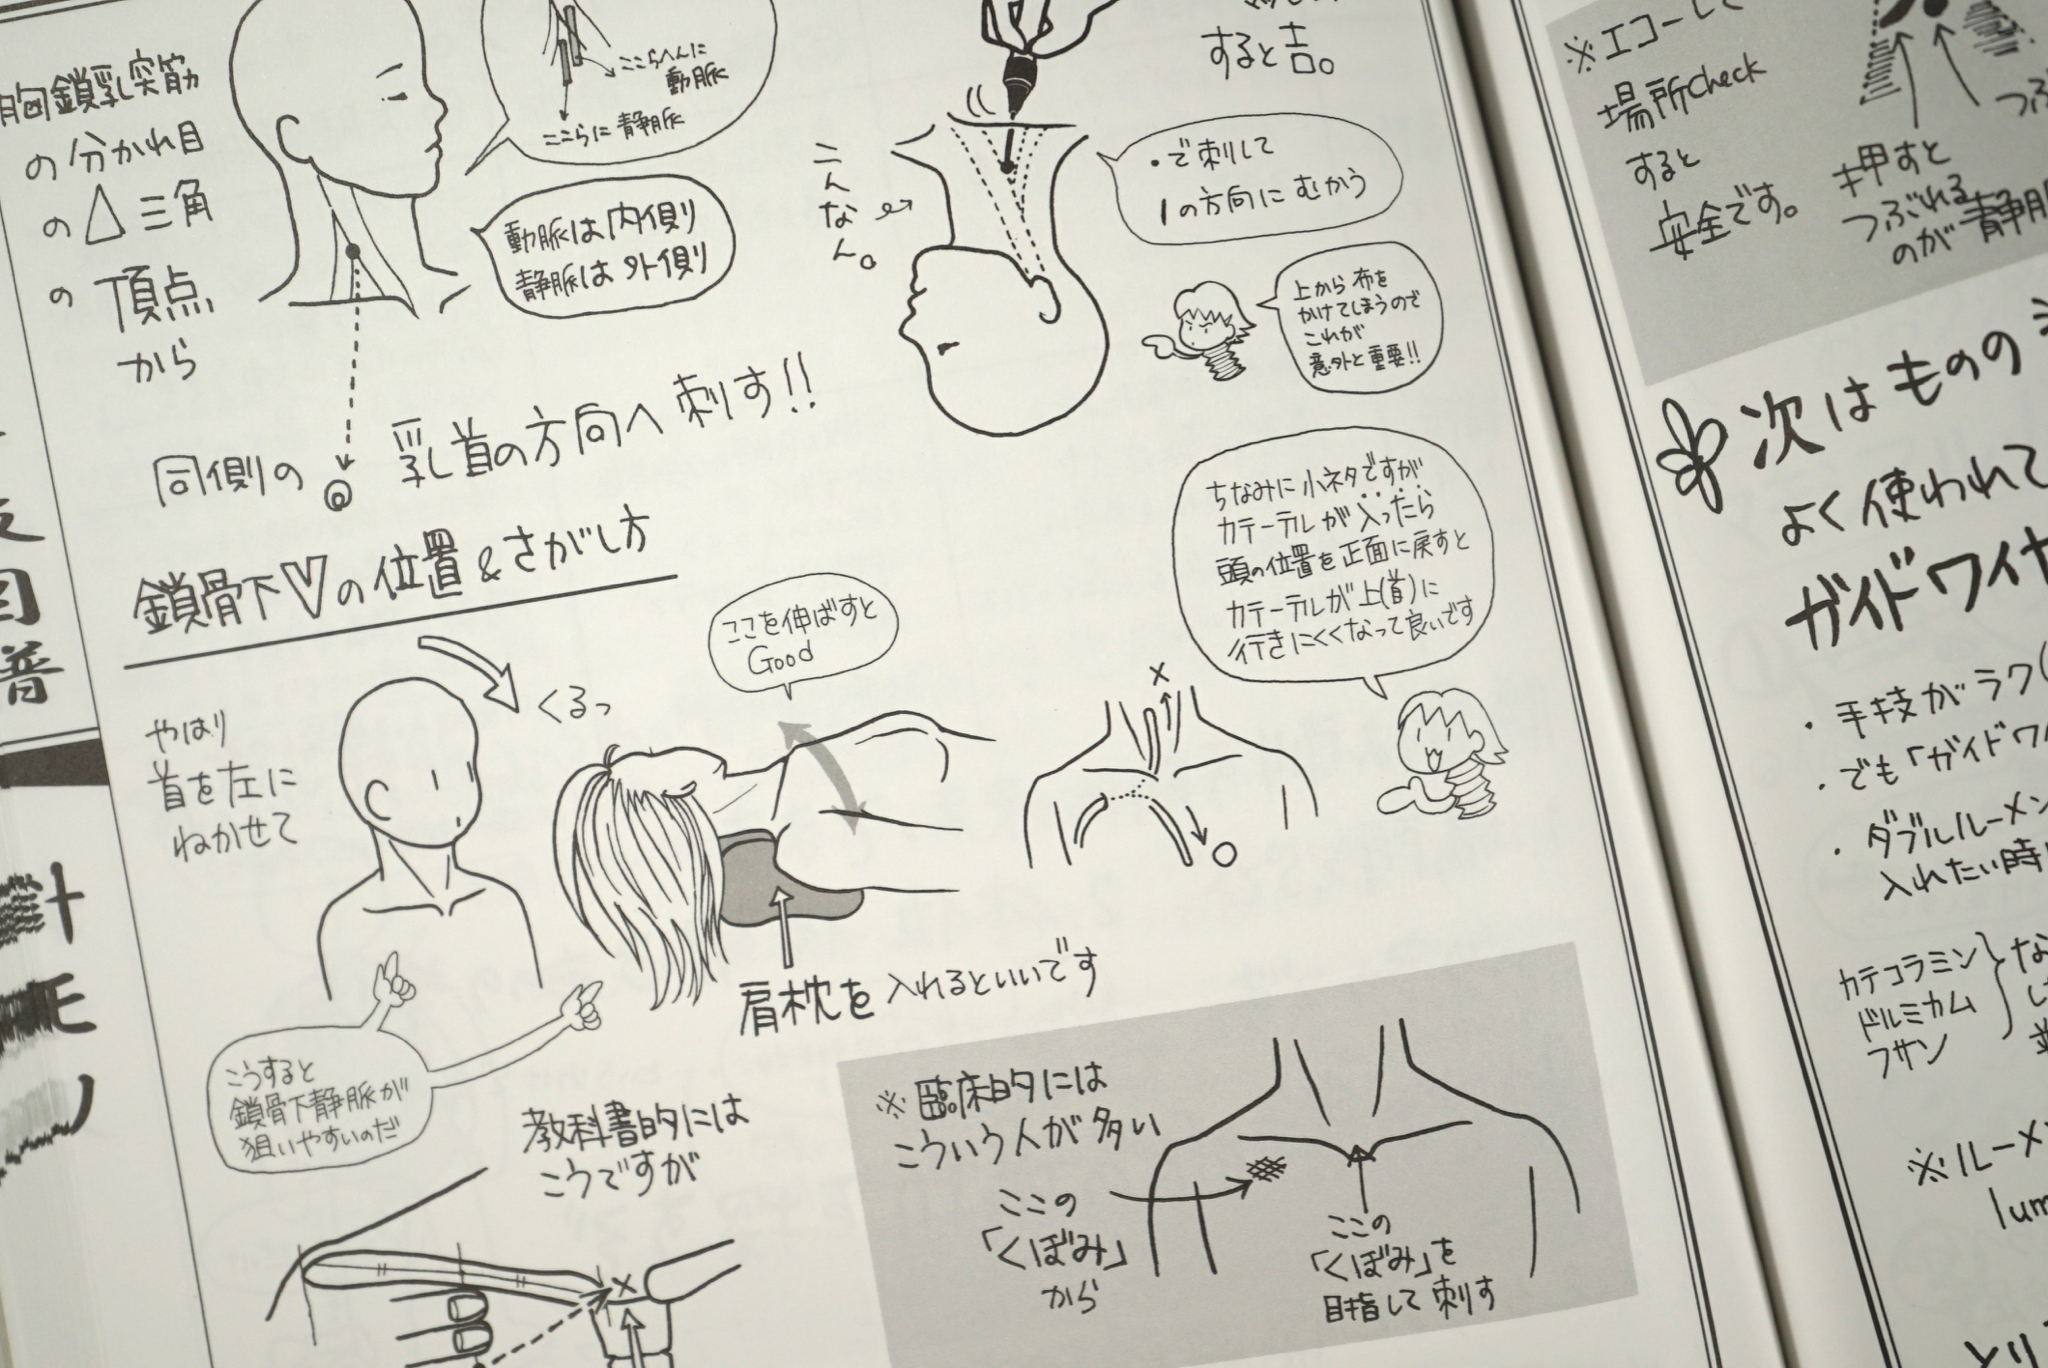 胸鎖乳突筋
の分かれ目
の△三角
の頂点
から
ここらへんに
動脈
ここらに静脈
動脈は内側
静脈は外側
同側の
乳首の方向へ刺す!!
すると吉。
こんなん。
・で刺して
の方向にむかう
上から布を
かけてしまうので
これが
意外と重要!!
鎖骨下Vの位置&さがし方
やはり
首を左に
ねかせて
くるっ
ここを伸ばすと
Good
肩枕を入れるといいです
こうすると
鎖骨下静脈が
狙いやすいのだ
ちなみに小ネタですが
カテーテルが入ったら
頭の位置を正面に戻すと
カテーテルが上(首)に
行きにくくなって良いです
×
○
教科書的には
こうですが
×
※臨床的には
こういう人が多い
ここの
「くぼみ」
から
ここの
「くぼみ」を
目指して刺す
※エコーして
場所Check
すると
安全です。
押すと
つぶれる
のが静脈
つぶ
次はものの
よく使われて
ガイドワイヤ
・手技がラク(
・でも「ガイドワイ
・ダブルルーメン
入れたい時
カテコラミン
ドルミカム
フサン
な
※ルーメン
lum